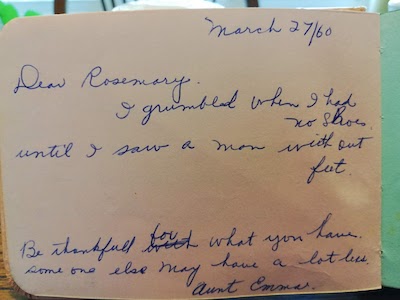 March 27/60
Dear Rosemary.
I grumbled when I had
no shoes.
until I saw a man without
feet.
for
Be thankfull with what you have.
some one else may have a lot less.
Aunt Emma.